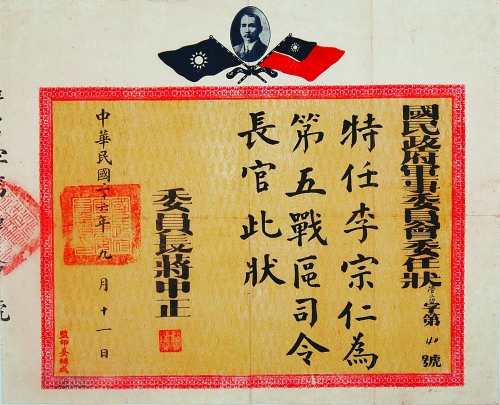 國民政府軍事委員會委任狀
字第40號
特任李宗仁為
第五戰區司令
長官此狀
委員長蔣中正
中華民國二十六年九月十一日
監印姜輔成